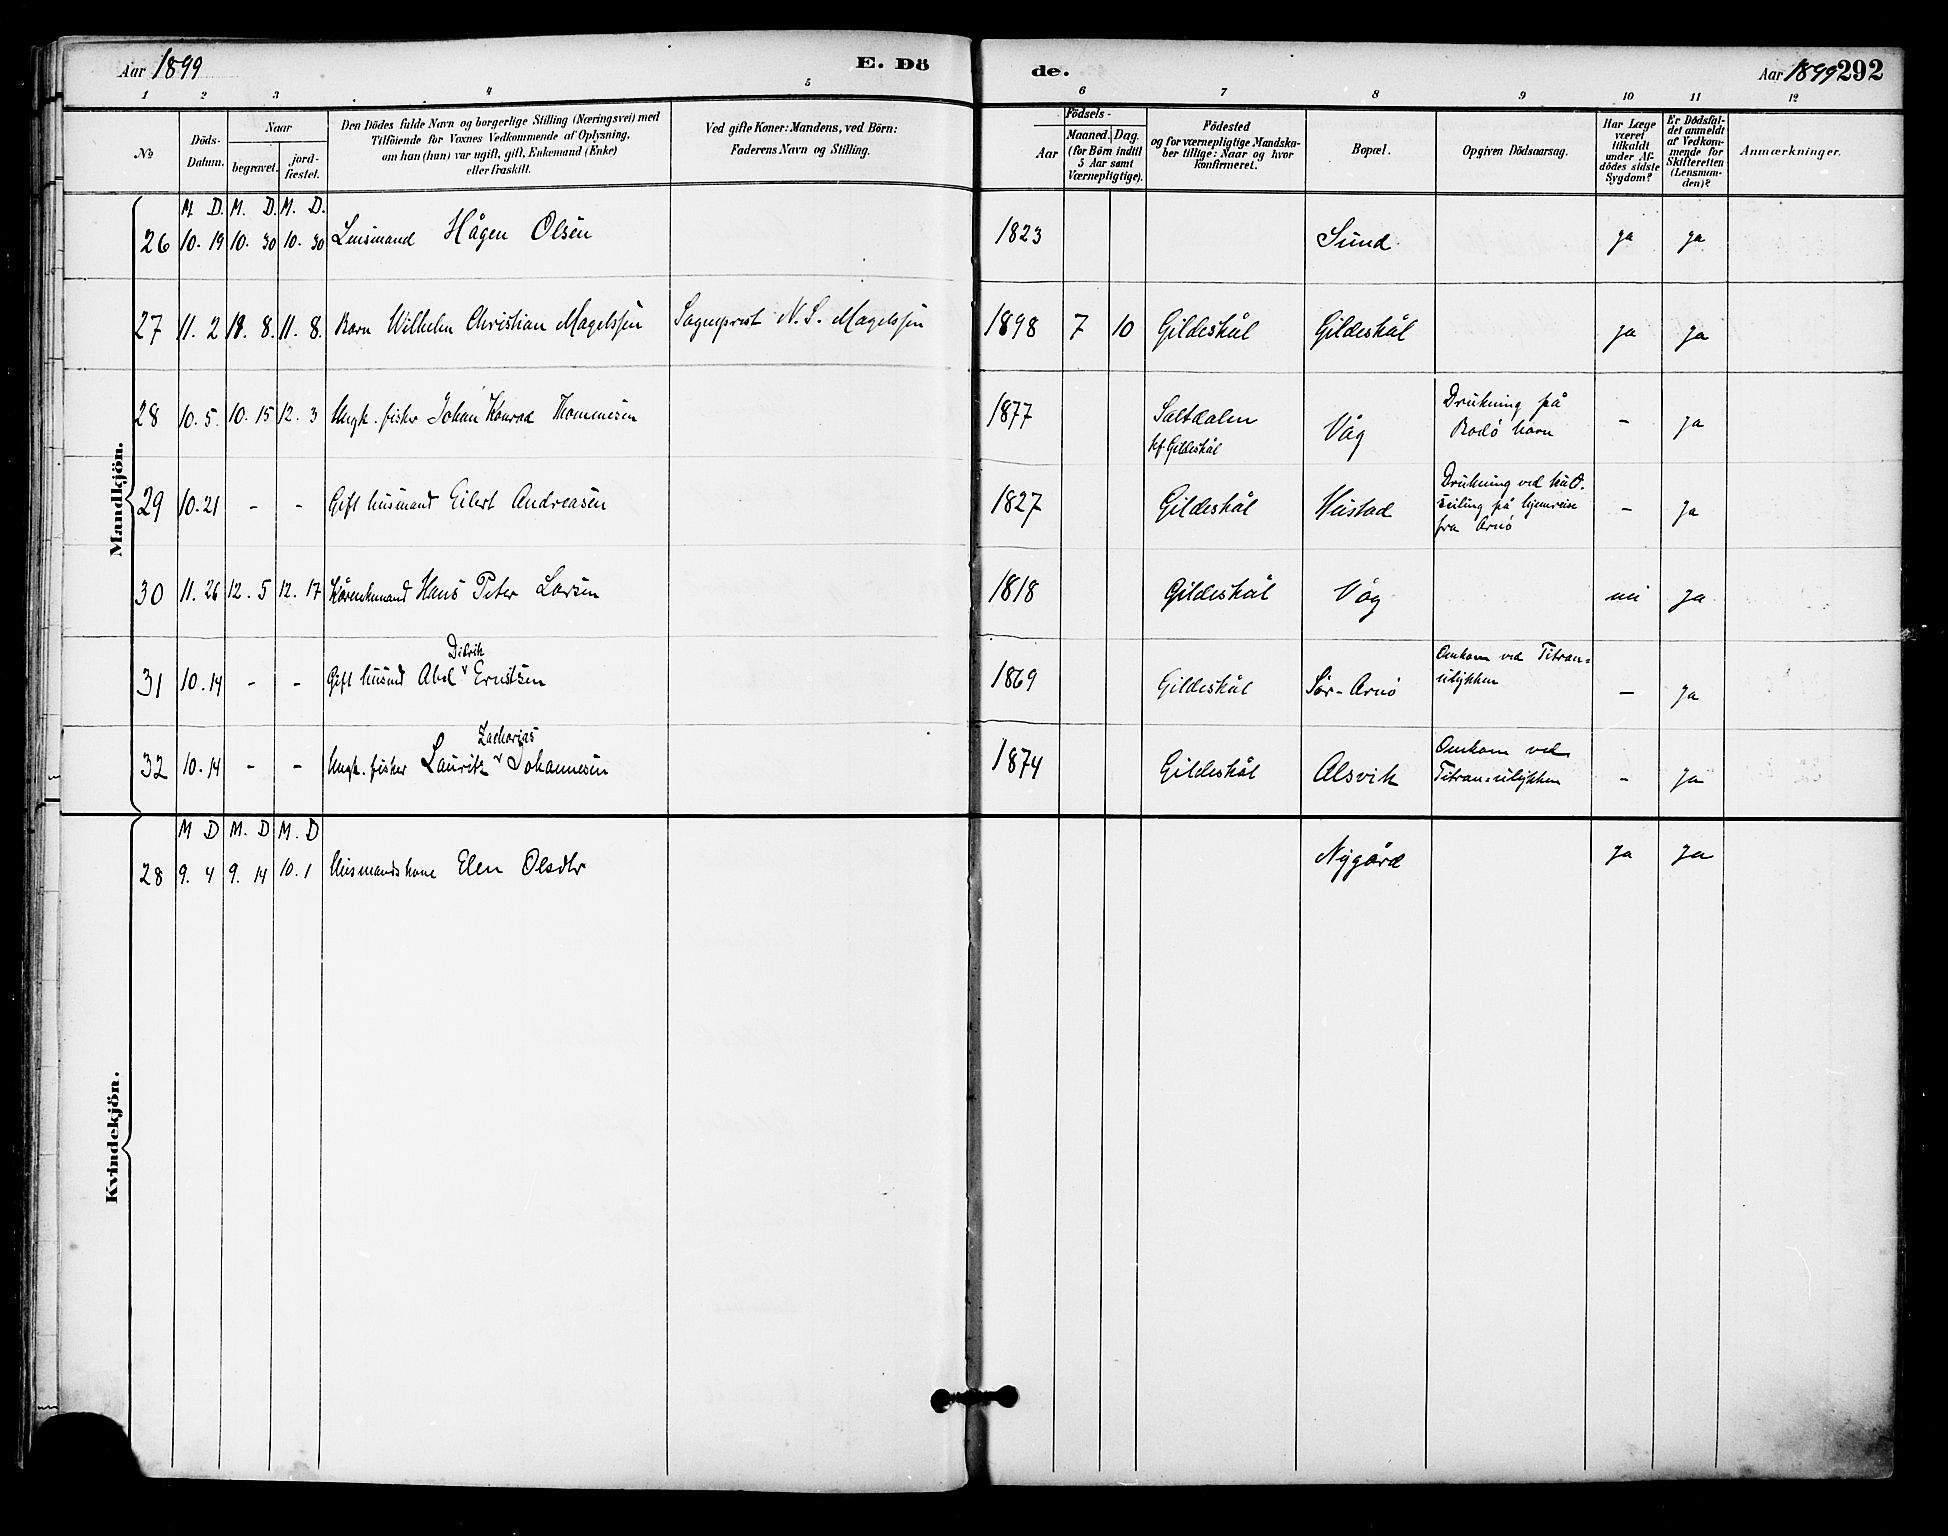 Aar 1899 E. Dö
de. Aar 1899 292
1 2 3 4 5 6 7 8 9 10 11 12
No
Döds-
Datum.
Naar
begravet.
jord-
fæstet.
Den Dödes fulde Navn og borgerlige Stilling (Næringsvei) med
Tilföiende for Voxnes Vedkommende af Oplysning,
om han (hun) var ugift, gift, Enkemand (Enke)
eller fraskilt.
Ved gifte Koner: Mandens, ved Börn:
Faderens Navn og Stilling.
Födsels-
Aar
Maaned. Dag.
(for Börn indtil
5 Aar samt
Værnepligtige).
Födested
og for værnepligtige Mandska-
ber tillige: Naar og hvor
konfirmeret.
Bopæl.
Opgiven Dödsaarsag.
Har Læge
været
tilkaldt
under Af-
dödes sidste
Sygdom?
Er Dödsfal-
det anmeldt
af Vedkom-
mende for
Skifteretten
(Lensman-
den)?
Anmærkninger.
Mandkjön.
M. D. M. D. M. D.
26 10. 19 10. 30 10. 30 Lensmand Hågen Olsen 1823 Sund ja ja
27 11. 2 11. 8. 11. 8. Barn Wilhelm Christian Magelssen Sogneprest N. S. Magelssen 1898 7 10 Gildeskål Gildeskål ja ja
28 10. 5. 10. 15 12. 3 Ungk. fisker Johan Konrad Thommesen 1877 Saltdalen Våg Drukning på - ja
kf. Gildeskål Bodö havn
29 10. 21 - - Gift husmand Eilert Andreasen 1827 Gildeskål Hustad Drukning ved - ja
seiling på hjemreise
fra Arnö
30 11. 26 12. 5 12. 17 Hans Peter Larsen 1818 Gildeskål Våg nei ja
Didrik
31 10. 14 - - Gift husmd Abel v Erntsen 1869 Gildeskål Sör-Arnö Omkom ved Titran= - ja
ulykken
Zacharias
32 10. 14 - - Ungk. fisker Lauritz v Johannesen 1874 Gildeskål Alsvik Omkom ved - ja
Titran=ulykken
Kvindekjön.
M D M. D M. D
28 9. 4 9. 14 10. 1 Husmandskone Elen Olsdtr Nygård ja ja